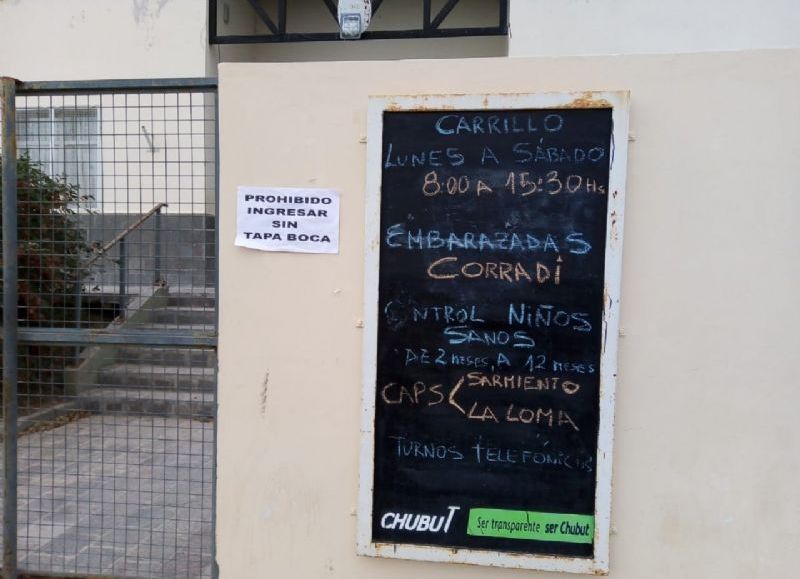 PROHIBIDO
INGRESAR
SIN
TAPA BOCA
CARRILLO
LUNES A SÁBADO
8:00 A 15:30 Hs
EMBARAZADAS
CORRADI
CONTROL NIÑOS
SANOS
DE 2 MESES, A 12 MESES
CAPS SARMIENTO
LA LOMA
TURNOS TELEFÓNICOS
CHUBUT
Ser transparente ser Chubut